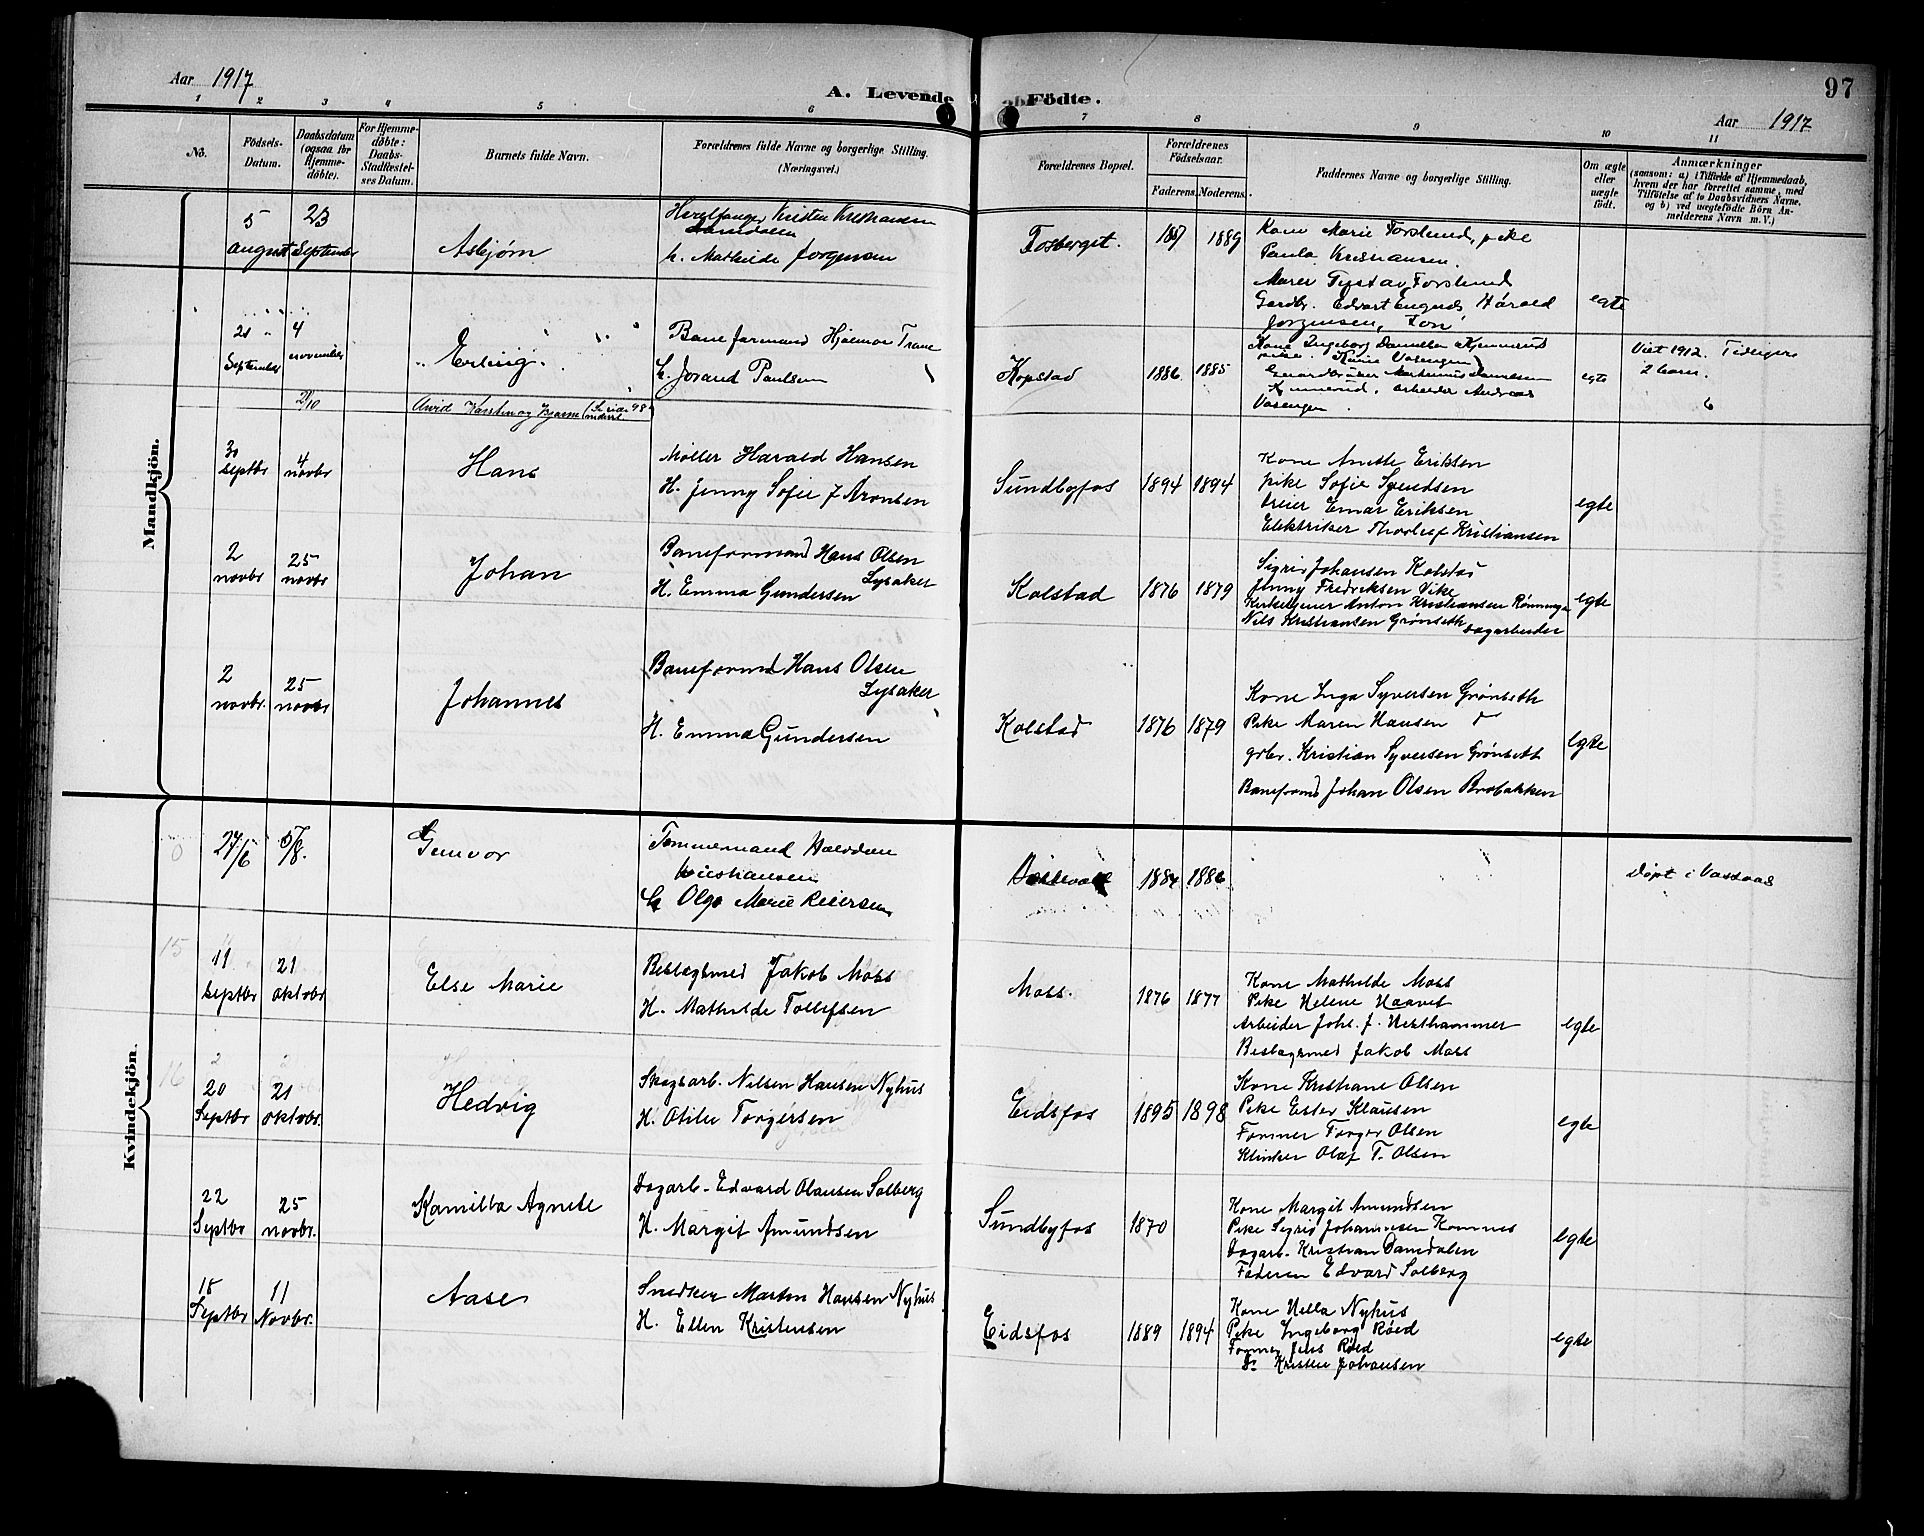 Aar 1917
A. Levende Födte.
97
Aar 1917
1 2 3 4 5 6 7 8 9 10 11
No.
Födsels-
Datum.
Daabsdatum
(ogsaa for
Hjemme-
döbte).
For Hjemme-
döbte:
Daabs-
Stadfæstel-
ses Datum.
Barnets fulde Navn.
Forældrenes fulde Navne og borgerlige Stilling.
(Næringsvei.)
Forældrenes Bopæl.
Forældrenes
Födselsaar.
Faderens. Moderens.
Faddernes Navne og borgerlige Stilling.
Om ægte
eller
uægte
födt.
Anmærkninger
(saasom: a) i Tilfælde af Hjemmedaab,
hvem der har forrettet samme, med
Tilföielse af to Daabsvidners Navne,
og b) ved uægtefödte Börn An-
melderens Navn m. V.)
Mandkjön.
5 august
23 September
Asbjørn
Kristen Kristiansen
H. Mathilde Jorgensen
Fosberget.
1889
Kone Marie Forslund, pike
Paula Kristiansen.
Murer Gustav Forslund
Gardbr. Edvart Engnes, Harald
Jorgensen, Fon
egte
21 September
4 november
Erling
Baneformand Hjalmar Trane
H. Jorand Paulsen
Kopstad
1886 1885
Kone Ingeborg Danielsen Kjemnerud
pike. Karie Vasengen
Gaardbruker Danielsen
arbeider Andreas
Vasengen.
egte
Viet 1912. Tidligere
2 barn.
6
2/10
Arvid Karsten og (Se side 98
nederst
30 septbr
4 novbr
Hans
Møller Harald Hansen
H. Jenny Sofie f Aronsen
Sundbyfos
1894 1894
Kone Anette Eriksen
pike Sofie Svendsen
Dreier Einar Eriksen
Elektriker Thorleif Kristiansen
egte
2 novbr
25 novbr
Johan
Baneformand Hans Olsen
Lysaker
H. Emma Gundersen
Kolstad
1876 1879
Sigrid Johansen Kolstad
Jenny Fredriksen Vike
Kirketjener Anton Kristiansen Rønninge
Nils Kristiansen Grønseth
Dagarbeider
egte
2 novbr.
25 novbr
Johannes
Baneformd Hans Olsen
Lysaker
H. Emma Gundersen
Kolstad
1876 1879
Kone Inga Syversen Grønseth
Pike Maren Hansen do
grbr. Kristian Syversen Grønseth
Baneformd Johan Olsen Brobakken
egte
Kvindekjön.
27/6
5/8.
Gunvor
Tømmermand Halvdan
Kristiansen
H Olga Marie Reiersen
1884 1886
Døpt i Vassaas
15
11 septbr
21 oktobr
Else Marie
Beslagsmed Jakob Moss
H. Mathilde Tollefsen
Moss.
1876 1877
Kone Mathilde Moss
Pike Helene Haavet
Arbeider Johs. J. Vesthammer
Beslagsmed Jakob Moss
egte
16
20 Septbr
21 oktobr.
Hedvig
Skogsarb. Nilsen Hansen Nyhus
H. Otilie Torgersen
Eidsfos
1895 1898
Kone Kristiane Olsen
Pike Ester Klausen
Former Torger Olsen
Klinker Olaf T. Olsen
egte
22 Septbr
25 novbr.
Kamilla Agnete
Dagarb. Edvard Olausen Solberg
H. Margit Amundsen
Sundbyfos
1870
Kone Margit Amundsen
Pike Sigrid Johannesen Komnes
Dagarb. Kristian Damdalen
Faderen Edvard Solberg
egte
18 Septbr
11 Novbr.
Aase
Snedker Martin Hansen Nyhus
H. Ellen Kristensen
Eidsfos
1889 1894
Kone Hella Nyhus
Pike Ingeborg Røed
Former Jens Røed
Do Kristen Johansen
egte